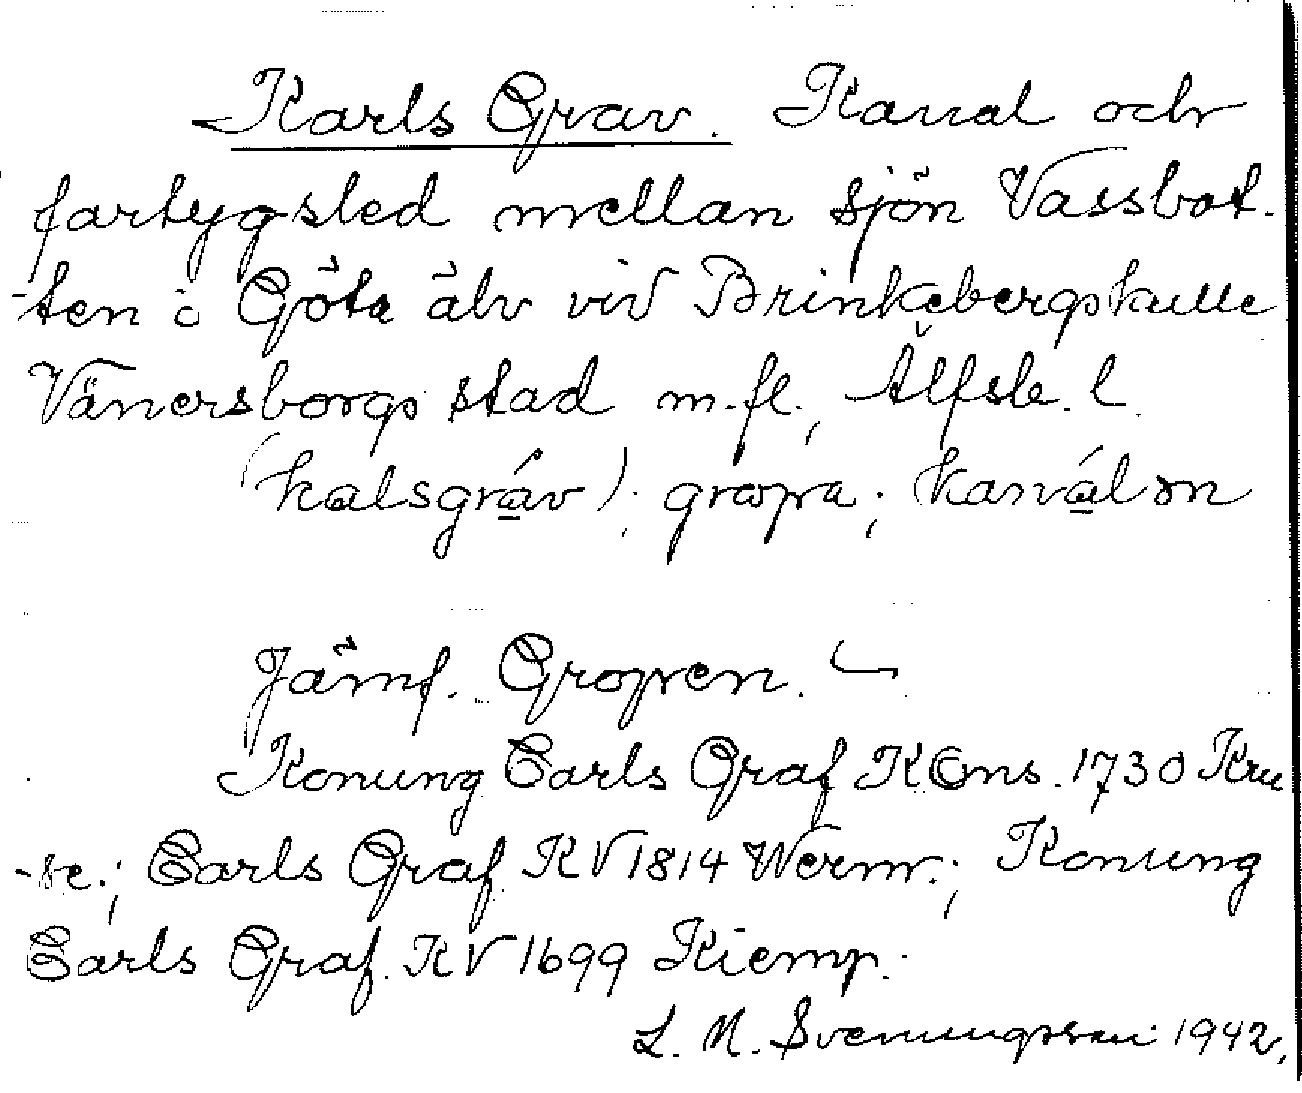 Karls Grav. Kanal och
fartygsled mellan sjön Vassbot-
-ten i Göta älv vid Brinkebergskulle
Vänersborgs stad m.fl., Älfsb. l.
(kalsgráv); gropa; kanálon
Jämf. Gropen.
Konung Carls Graf KOms. 1730 Kru
-se.; Carls Graf KV 1814 Werm.; Konung
Carls Graf KV 1699 Kiemp.
L. N. Svenungsson 1942.